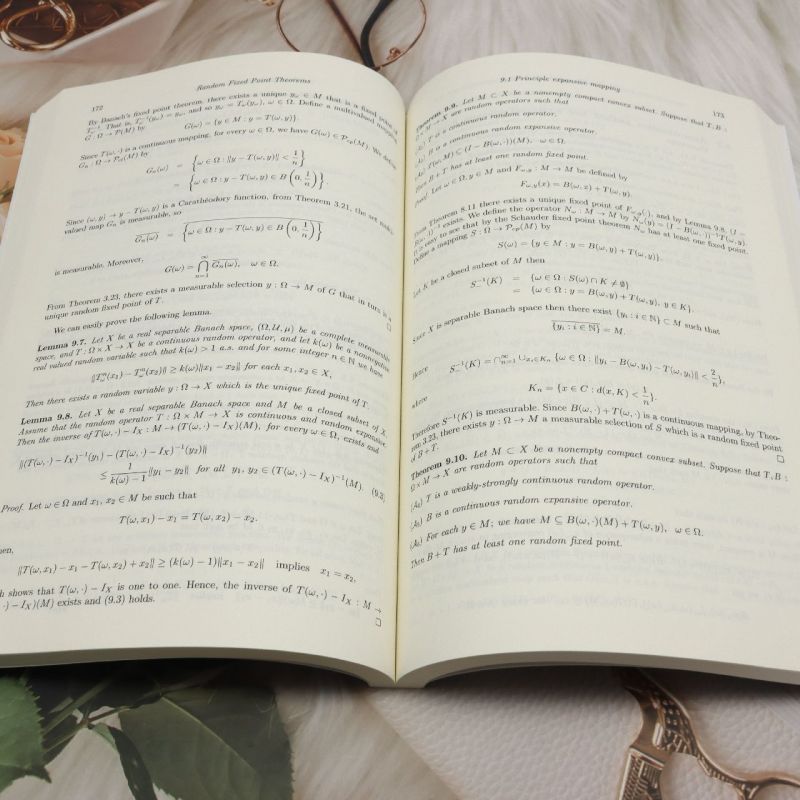 172
Random Fixed Point Theorems
By Banach's fixed point theorem, there exists a unique y_ω ∈ M that is a fixed point of
T_ω^{-1}. That is, T_ω^{-1}(y_ω) = y_ω, and so y_ω = T_ω(y_ω), ω ∈ Ω. Define a multivalued mapping
G : Ω → P(M) by
G(ω) = {y ∈ M : y = T(ω, y)}.
Since T(ω, ·) is a continuous mapping, for every ω ∈ Ω, we have G(ω) ∈ P_cp(M). We define
G_n : Ω → P_cp(M) by
G_n(ω) = {ω ∈ Ω : ‖y − T(ω, y)‖ < 1/n}
= {ω ∈ Ω : y − T(ω, y) ∈ B(0, 1/n)}.
Since (ω, y) → y − T(ω, y) is a Carathéodory function, from Theorem 3.21, the set multi-
valued map G_n is measurable, so
\overline{G_n(ω)} = \overline{{ω ∈ Ω : y − T(ω, y) ∈ B(0, 1/n)}}
is measurable. Moreover,
G(ω) = ⋂_{n=1}^{∞} \overline{G_n(ω)}, ω ∈ Ω.
From Theorem 3.23, there exists a measurable selection y : Ω → M of G that in turn is a
unique random fixed point of T. □
We can easily prove the following lemma.
Lemma 9.7. Let X be a real separable Banach space, (Ω, U, μ) be a complete measurable
space, and T : Ω × X → X be a continuous random operator, and let k(ω) be a nonnegative
real valued random variable such that k(ω) > 1 a.s. and for some integer n ∈ ℕ we have
‖T_ω^n(x_1) − T_ω^n(x_2)‖ ≥ k(ω)‖x_1 − x_2‖ for each x_1, x_2 ∈ X,
Then there exists a random variable y : Ω → X which is the unique fixed point of T.
Lemma 9.8. Let X be a real separable Banach space and M be a closed subset of X.
Assume that the random operator T : Ω × M → X is continuous and random expansive.
Then the inverse of T(ω, ·) − I_X : M → (T(ω, ·) − I_X)(M), for every ω ∈ Ω, exists and
‖(T(ω, ·) − I_X)^{-1}(y_1) − (T(ω, ·) − I_X)^{-1}(y_2)‖
≤ 1/(k(ω) − 1) ‖y_1 − y_2‖ for all y_1, y_2 ∈ (T(ω, ·) − I_X)^{-1}(M). (9.3)
Proof. Let ω ∈ Ω and x_1, x_2 ∈ M be such that
T(ω, x_1) − x_1 = T(ω, x_2) − x_2.
en,
‖T(ω, x_1) − x_1 − T(ω, x_2) + x_2‖ ≥ (k(ω) − 1)‖x_1 − x_2‖ implies x_1 = x_2,
h shows that T(ω, ·) − I_X is one to one. Hence, the inverse of T(ω, ·) − I_X : M →
, ·) − I_X)(M) exists and (9.3) holds. □
9.1 Principle expansive mapping
173
Theorem 9.9. Let M ⊂ X be a nonempty compact convex subset. Suppose that T, B :
Ω × M → X are random operators such that
T is a continuous random operator.
B is a continuous random expansive operator.
T(ω, M) ⊆ (I − B(ω, ·))(M), ω ∈ Ω.
Then B + T has at least one random fixed point.
Proof. Let ω ∈ Ω, y ∈ M and F_{ω,y} : M → M be defined by
F_{ω,y}(x) = B(ω, x) + T(ω, y).
Theorem 8.11 there exists a unique fixed point of F_{ω,y}(·), and by Lemma 9.8, (I −
exists. We define the operator N_ω : M → M by N_ω(y) = (I − B(ω, ·))^{-1}T(ω, y).
It is easy to see that by the Schauder fixed point theorem N_ω has at least one fixed point.
Define a mapping S : Ω → P_cp(M) by
S(ω) = {y ∈ M : y = B(ω, y) + T(ω, y)}.
Let K be a closed subset of M then
S_−^{-1}(K) = {ω ∈ Ω : S(ω) ∩ K ≠ ∅}
= {ω ∈ Ω : y = B(ω, y) + T(ω, y), y ∈ K}.
Since X is separable Banach space then there exist {y_i : i ∈ ℕ} ⊂ M such that
\overline{{y_i : i ∈ ℕ}} = M.
Hence S_−^{-1}(K) = ∩_{n=1}^{∞} ∪_{x_i ∈ K_n} {ω ∈ Ω : ‖y_i − B(ω, y_i) − T(ω, y_i)‖ < 2/n},
where
K_n = {x ∈ C : d(x, K) < 1/n}.
Therefore S^{-1}(K) is measurable. Since B(ω, ·) + T(ω, ·) is a continuous mapping, by Theo-
rem 3.23, there exists y : Ω → M a measurable selection of S which is a random fixed point
B + T. □
Theorem 9.10. Let M ⊂ X be a nonempty compact convex subset. Suppose that T, B :
Ω × M → X are random operators such that
T is a weakly-strongly continuous random operator.
B is a continuous random expansive operator.
For each y ∈ M; we have M ⊆ B(ω, ·)(M) + T(ω, y), ω ∈ Ω.
Then B + T has at least one random fixed point.